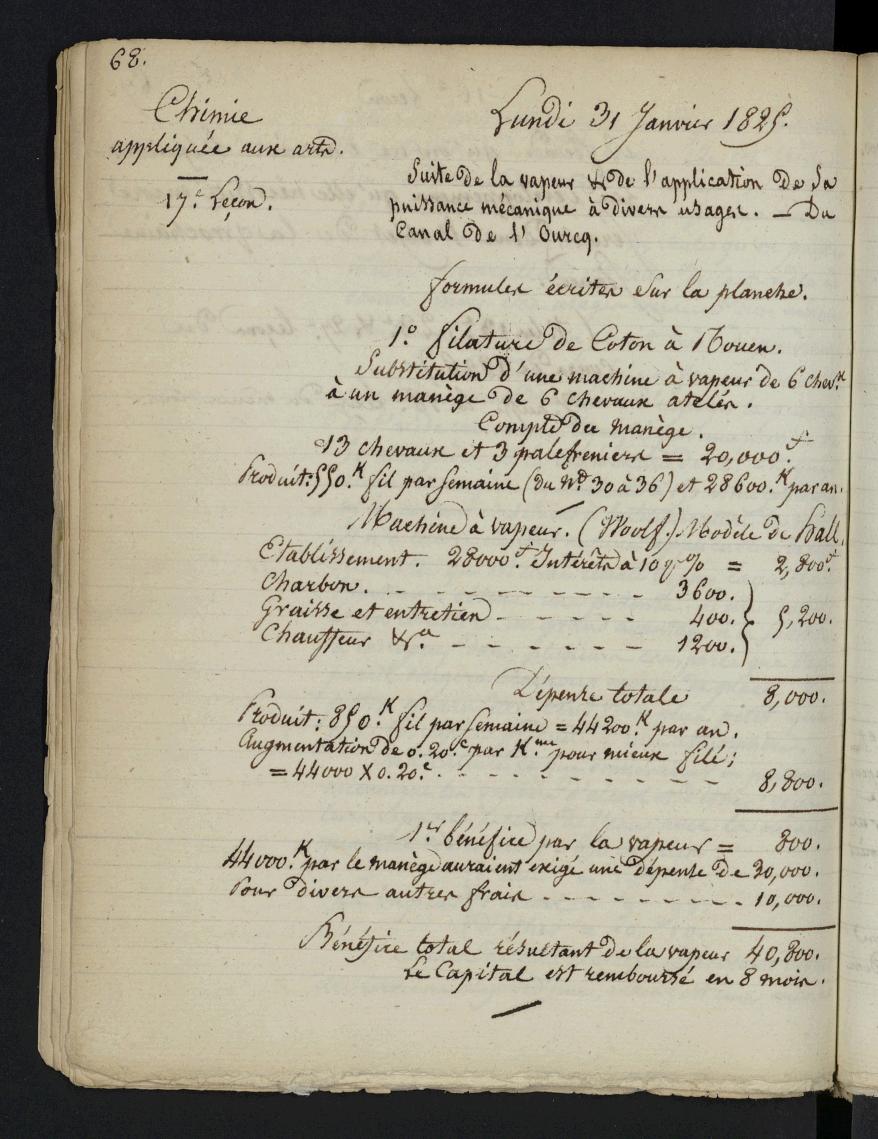 68.
Chimie
appliquée aux arts.
17.e Leçon.
Lundi 31 Janvier 1825.
Suite de la vapeur & de l'application de Sa
puissance mécanique à divers usages. — Du
Canal de l'Ourcq.
formules écrites sur la planche.
1.° filature de Coton à Rouen.
Substitution d'une machine à vapeur de 6 chev.x
à un manège de 6 chevaux atelés.
Compte du manège.
13 chevaux et 3 palefreniers = 20,000.f
Produit: 550.K fil par semaine (du N.o 30 à 36) et 28600.K par an.
Machine à vapeur. (Woolf.) Modèle de Hall.
Etablissement. 28000.f Intérêts à 10 p% = 2,800.f
Charbon. - - - - - - - - - - 3600.
Graisse et entretien - - - - - - 400. } 5,200.
Chauffeur &.a - - - - - - 1200.
Dépense totale 8,000.
Produit: 850.K fil par semaine = 44200.K par an.
Augmentation de 0.20.c par K.me pour mieux filé;
= 44000 X 0.20.c - - - - - - - - - 8,800.
1.er bénéfice par la vapeur = 800.
44000.K par le manège auraient exigé une dépense de 30,000.
Pour divers autres frais - - - - - - - - - 10,000.
Bénéfice total résultant de la vapeur 40,800.
Le Capital est remboursé en 8 mois.